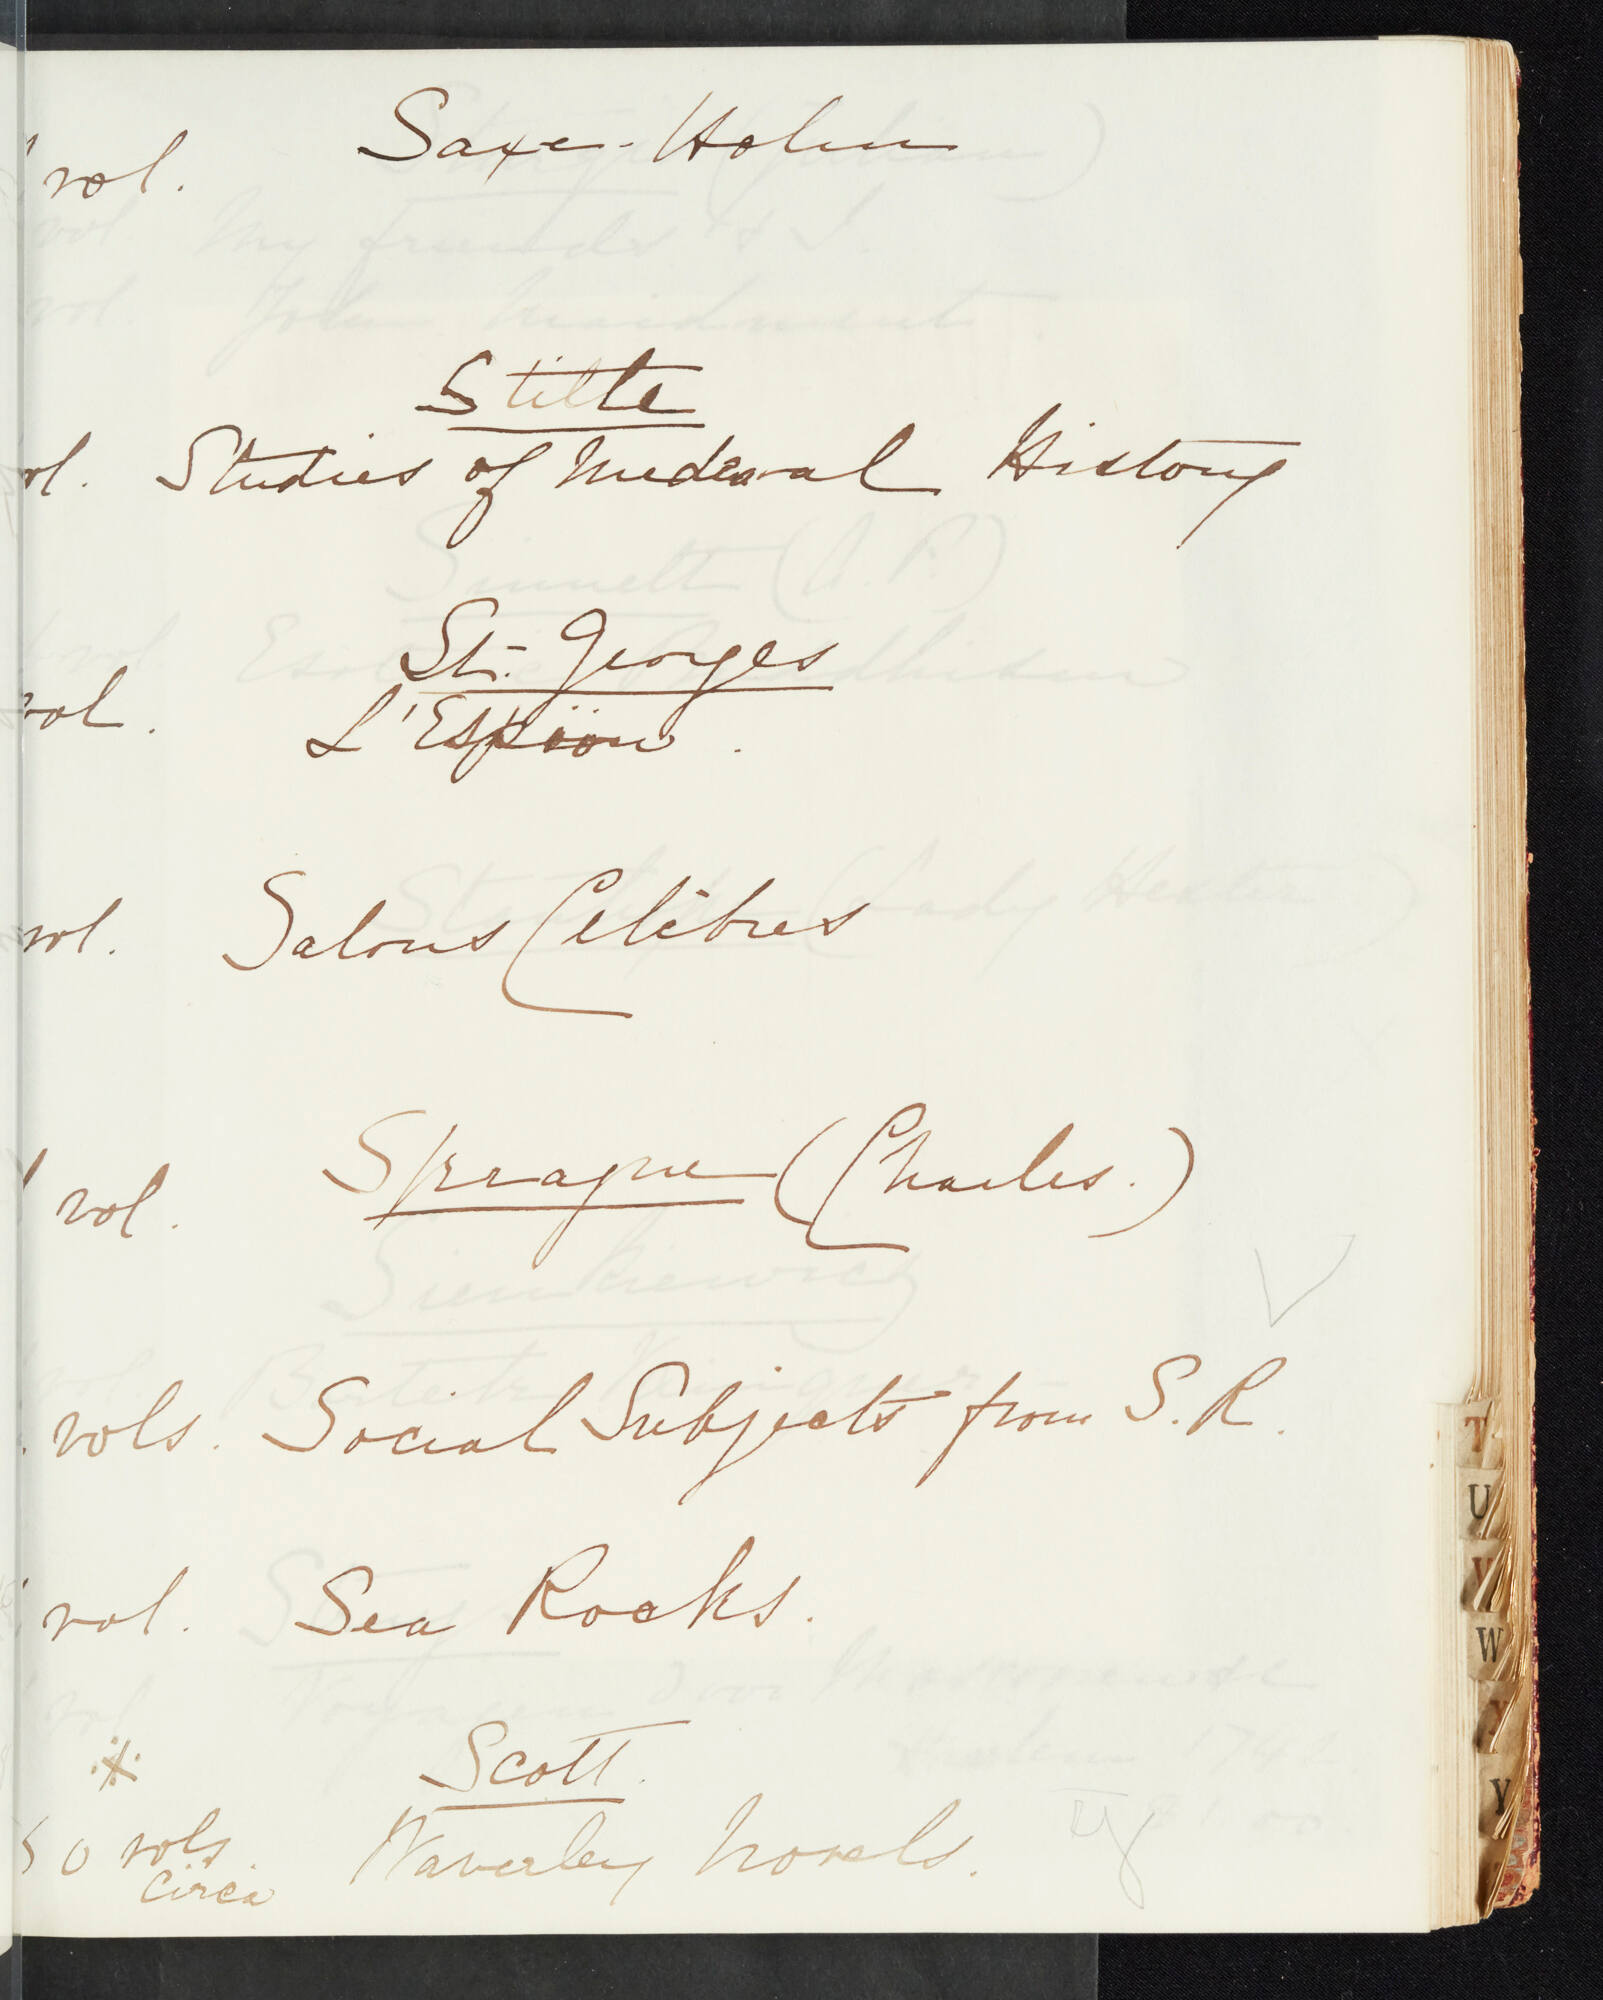 1 vol. Saxe-Holm
Stille
vol. Studies of Mediaeval History
St. Georges
vol. L'Espion.
vol. Salons Célèbres
1 vol. Sprague (Charles.)
vols. Social Subjects from S.R.
vol. Sea Rocks.
Scott.
50 vols. Waverley Novels.
circa
T
U
V
W
Y